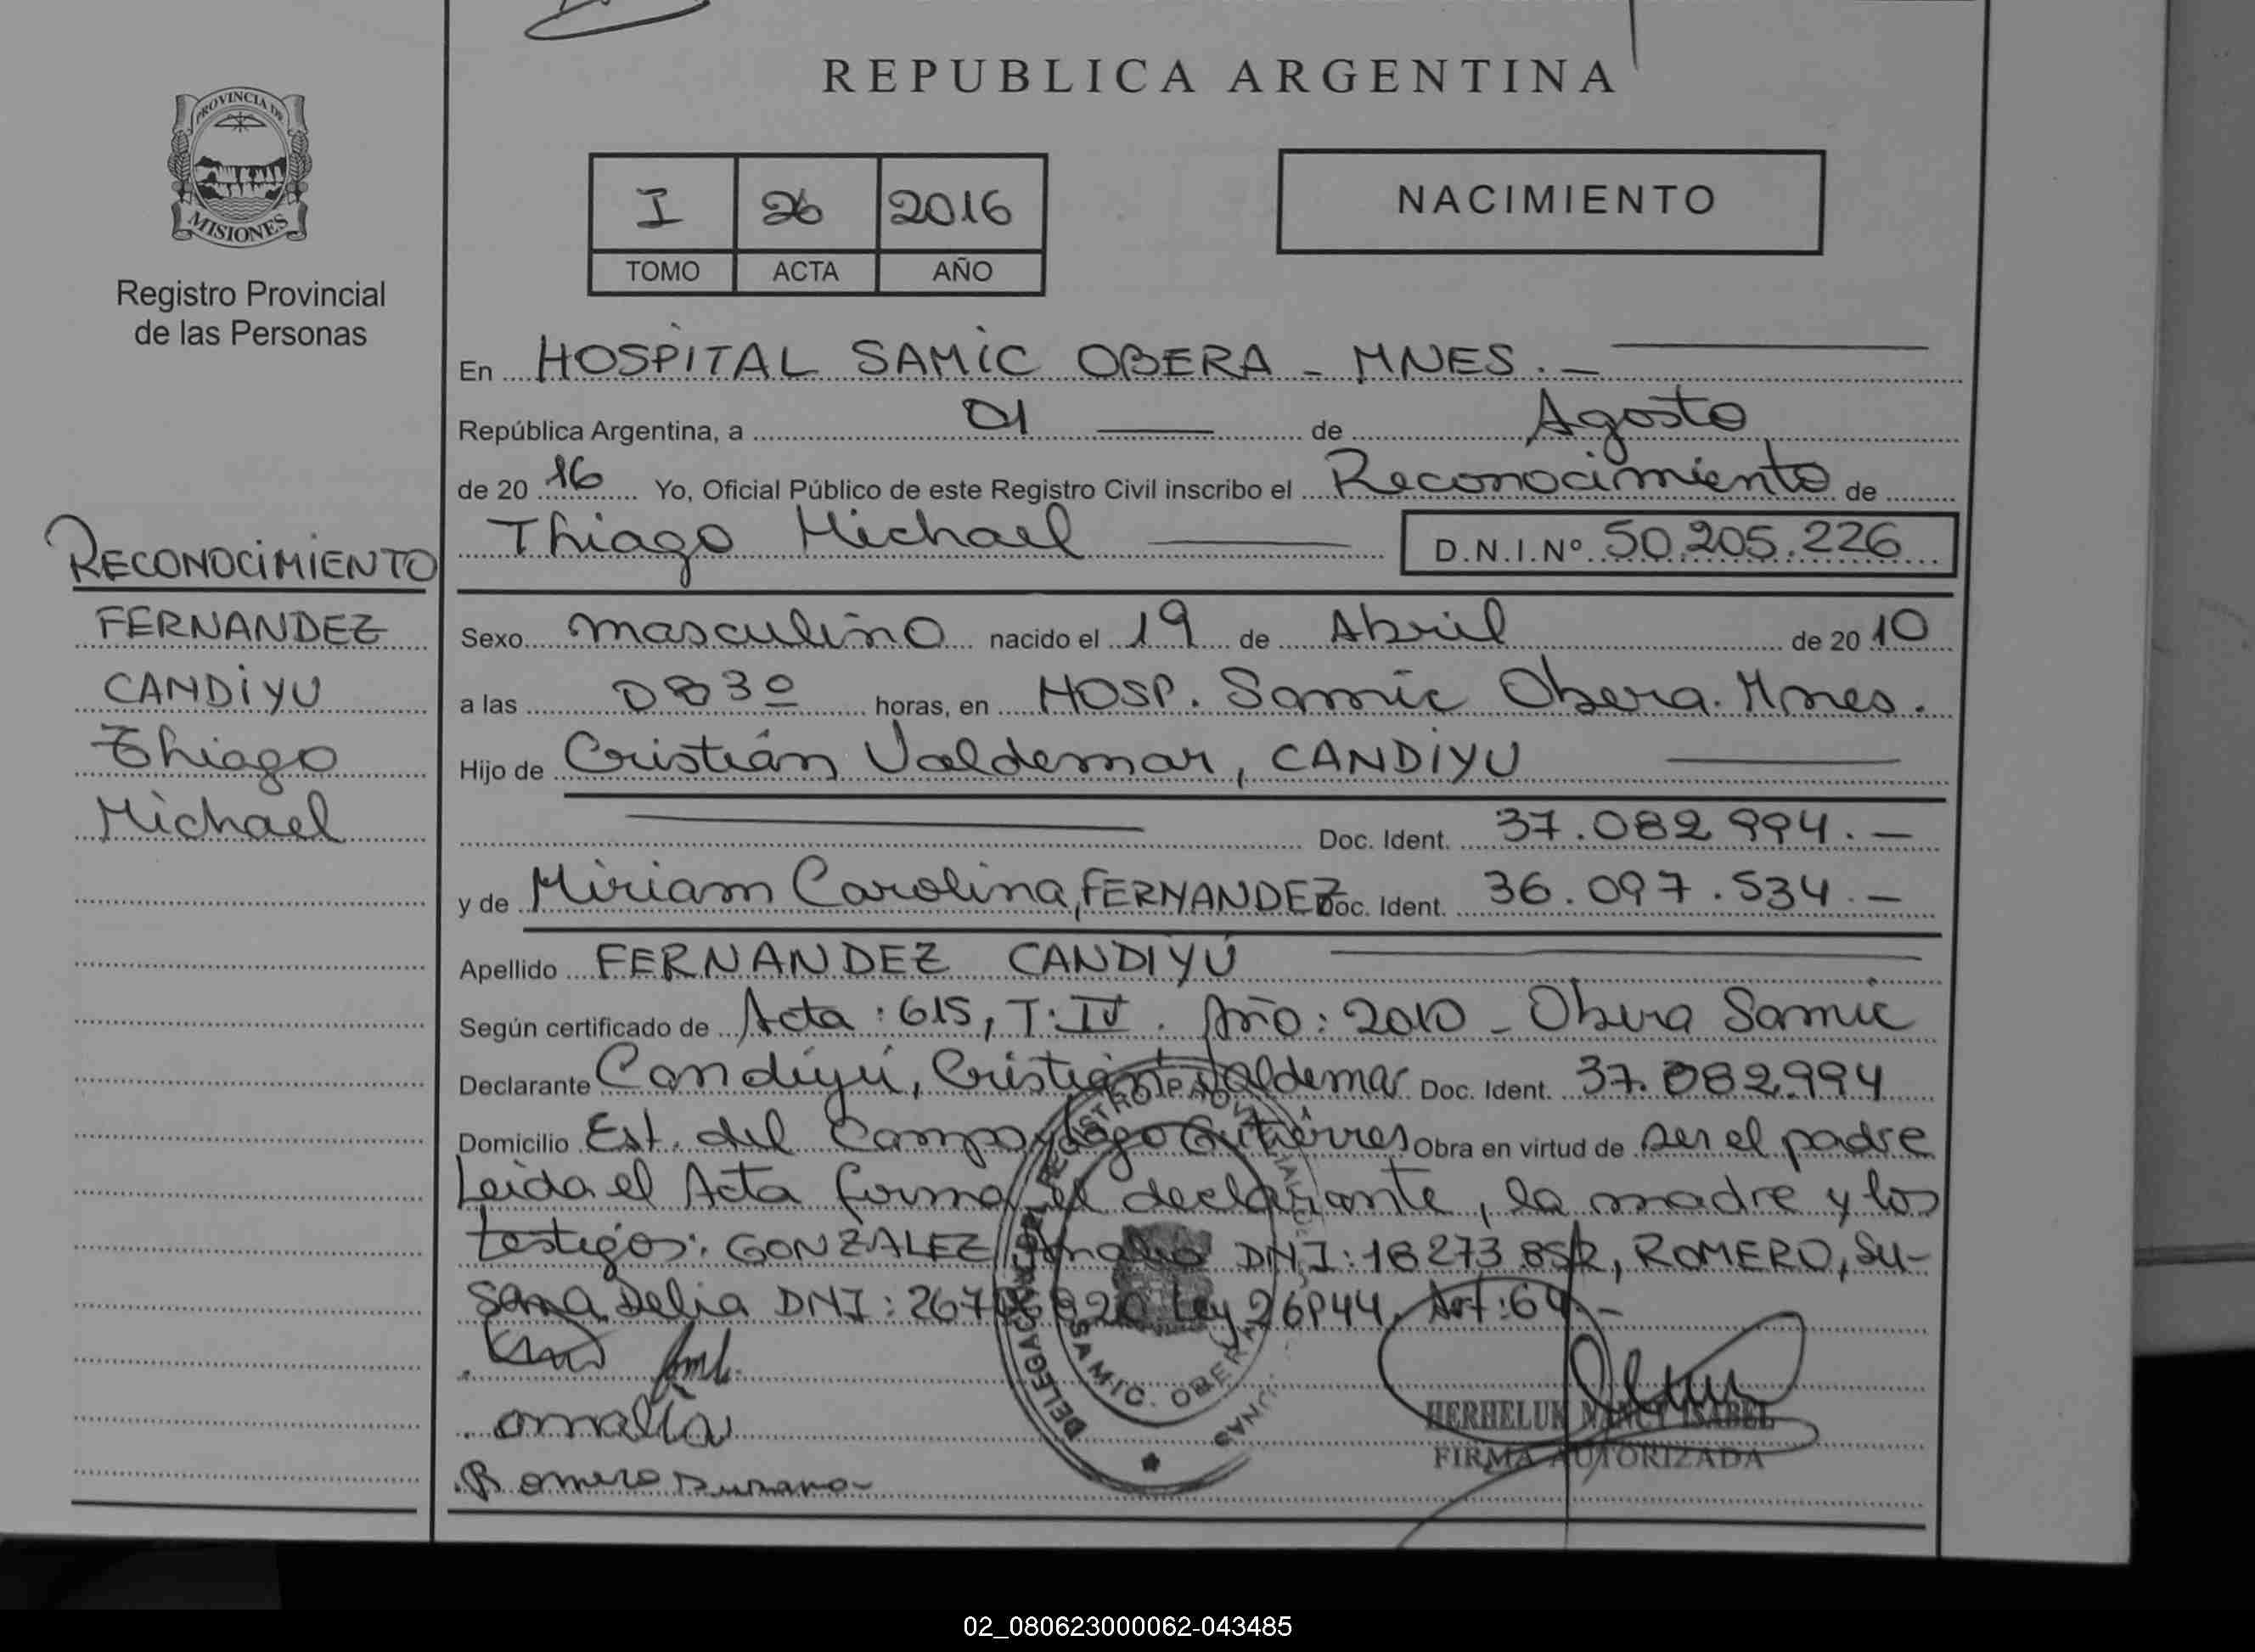 REPUBLICA ARGENTINA
PROVINCIA DE
MISIONES
Registro Provincial
de las Personas
I 26 2016
TOMO ACTA AÑO
NACIMIENTO
En HOSPITAL SAMIC OBERA - MNES.-
República Argentina, a 01 de Agosto
de 20 16 Yo, Oficial Público de este Registro Civil inscribo el Reconocimiento de
Thiago Michael D.N.I.Nº 50.205.226
RECONOCIMIENTO
FERNANDEZ
CANDIYU
Thiago
Michael
Sexo masculino nacido el 19 de Abril de 20 10
a las 0830 horas, en HOSP. Samic Obera. Mnes.
Hijo de Cristián Valdemar, CANDIYU
Doc. Ident. 37.082 994.-
y de Miriam Carolina, FERNANDEZ Doc. Ident. 36.097.534.-
Apellido FERNANDEZ CANDIYÚ
Según certificado de Acta: 615, T: IV. Año: 2010 - Obera Samic
Declarante Candiyú, Cristian Valdemar Doc. Ident. 37.082.994
Domicilio Est. del Campo y Lago Gutiérres Obra en virtud de ser el padre
Leida el Acta firma el declarante, la madre y los
testigos: GONZALEZ DNI: 18273 852, ROMERO, Su-
sana Delia DNI: Ley 26944, Art: 64.-
amalia
Romero Susana
DELEGACION
SAMIC. OBERA
HERHELUK NANCY ISABEL
FIRMA AUTORIZADA
02_080623000062-043485